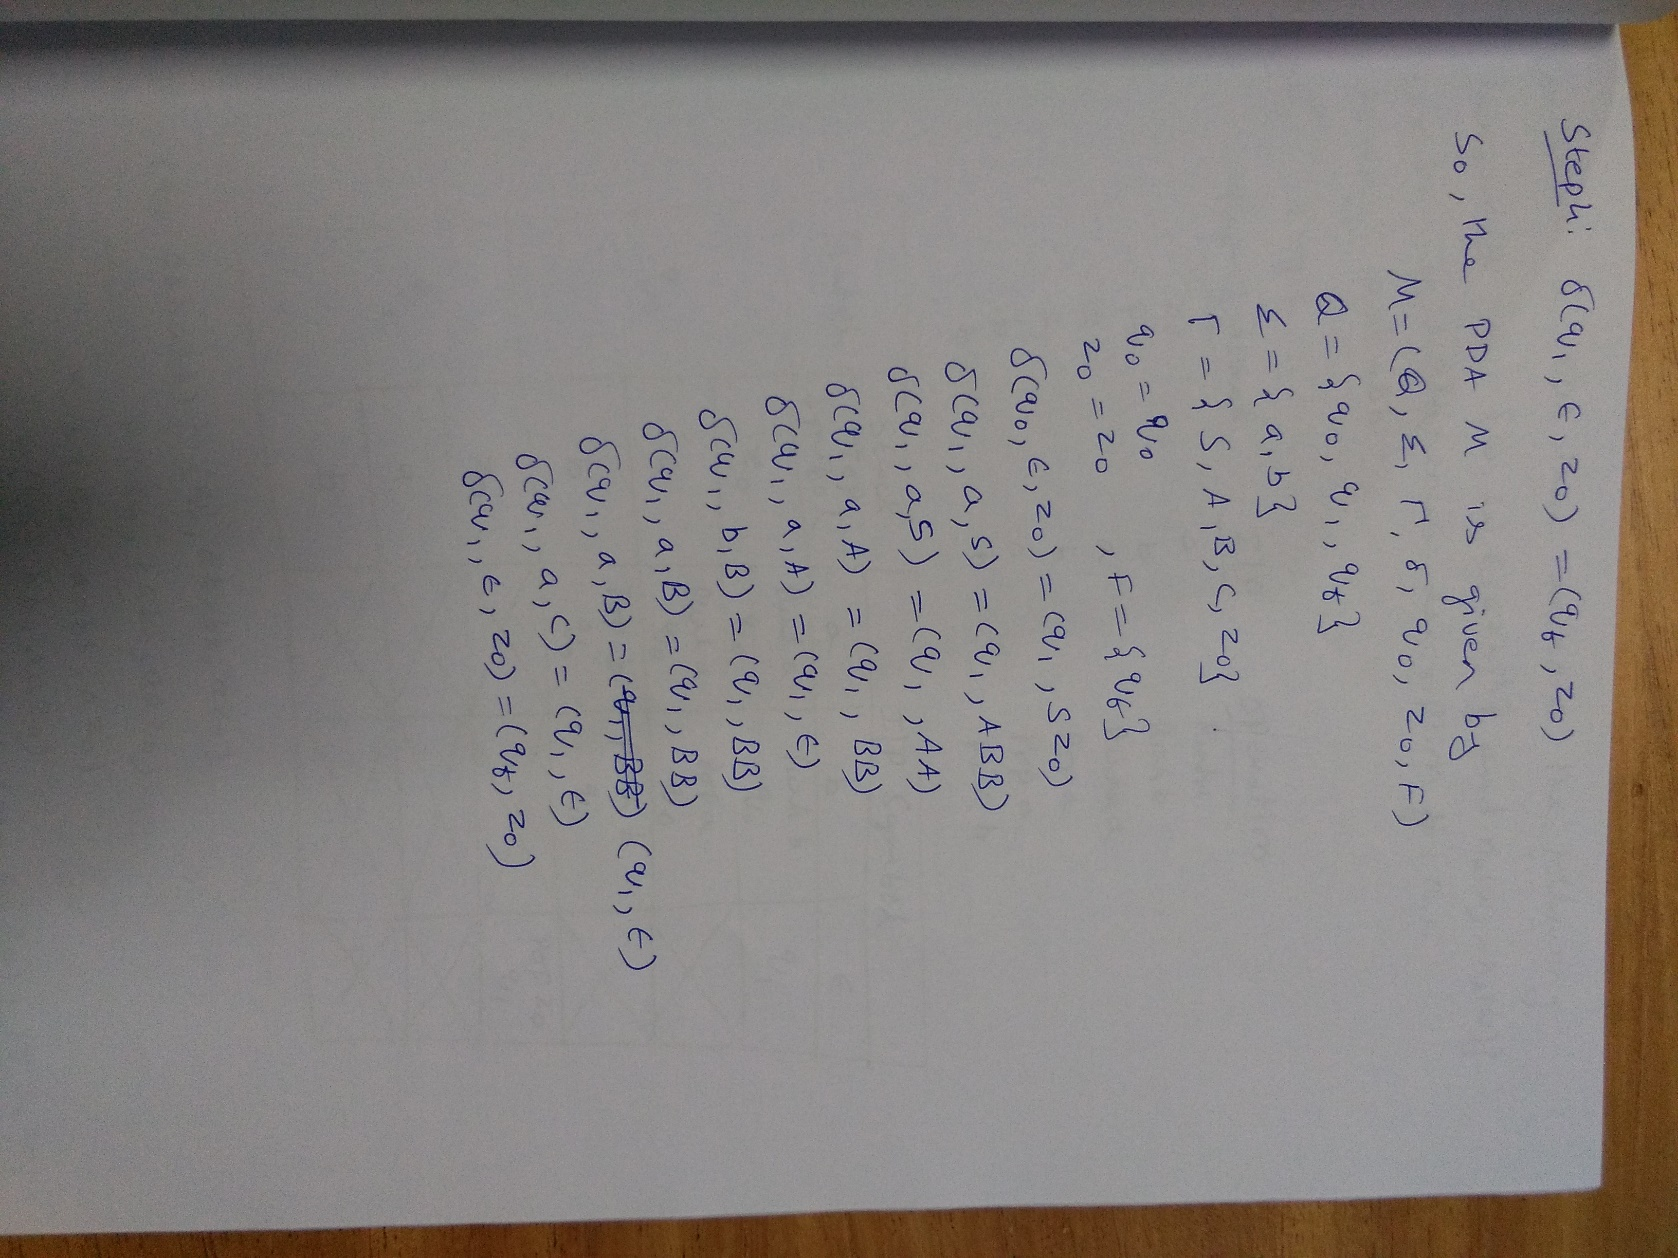 Step4: δ(q1, ε, z0) = (qf, z0)
So, the PDA M is given by
M = (Q, Σ, Γ, δ, q0, z0, F)
Q = {q0, q1, qf}
Σ = {a, b}
Γ = {S, A, B, C, z0}
q0 = q0
z0 = z0 , F = {qf}
δ(q0, ε, z0) = (q1, Sz0)
δ(q1, a, S) = (q1, ABB)
δ(q1, a, S) = (q1, AA)
δ(q1, a, A) = (q1, BB)
δ(q1, a, A) = (q1, ε)
δ(q1, b, B) = (q1, BB)
δ(q1, a, B) = (q1, BB)
δ(q1, a, B) = (q1, BB) (q1, ε)
δ(q1, a, C) = (q1, ε)
δ(q1, ε, z0) = (qf, z0)